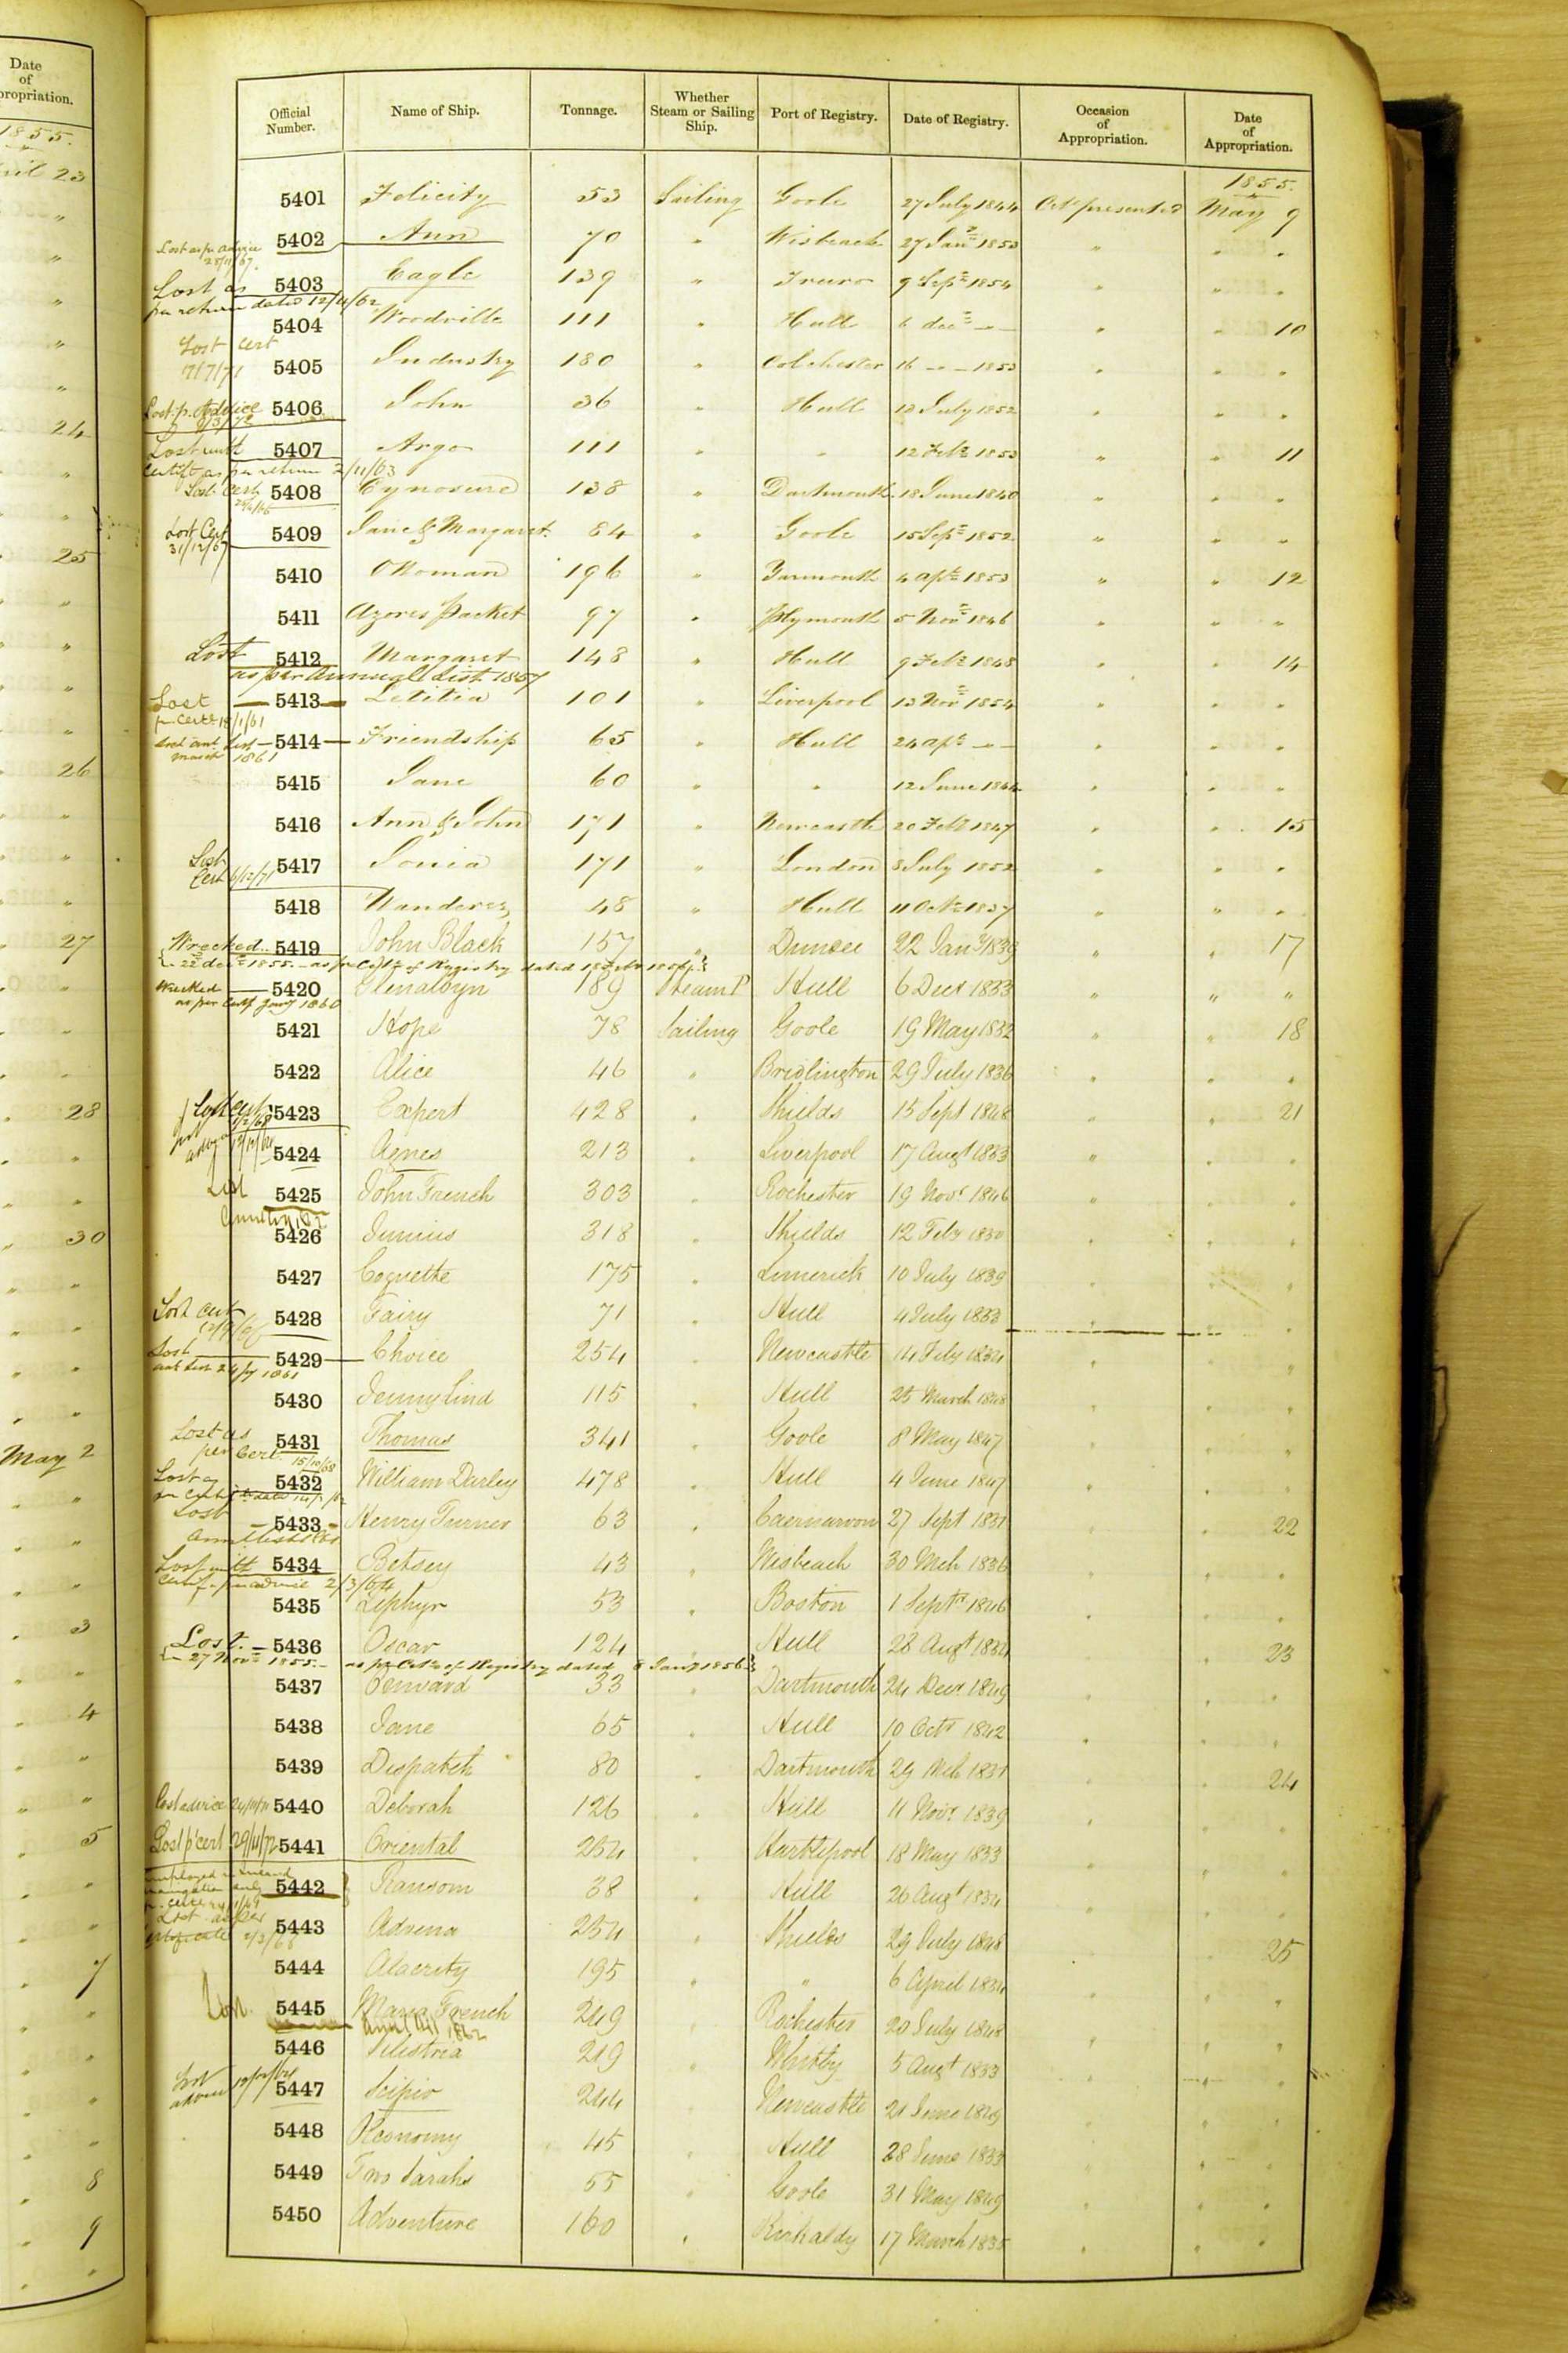 Date
of
propriation.
1855.
ril 23
24
25
26
27
28
30
May 2
3
4
5
7
8
9
Official Number. Name of Ship. Tonnage. Whether Steam or Sailing Ship. Port of Registry. Date of Registry. Occasion of Appropriation. Date of Appropriation.
1855.
5401 Felicity 53 Sailing Goole 27 July 1844 Cert presented May 9
Lost as pr advice 28/11/67. 5402 Ann 70 " Wisbeach 27 Jan 1853 " " "
Lost as per return dated 12/4/62 5403 Eagle 139 " Truro 9 Sept 1854 " " "
5404 Woodville 111 " Hull 6 dec " " " 10
Lost Cert 17/7/71 5405 Industry 180 " Colchester 16 " " 1853 " " "
Lost p. Advice 5406 John 36 " Hull 13 July 1852 " " "
Lost with Certift as per return 2/11/63 5407 Argo 111 " " 12 Feb 1853 " " 11
Lost Cert 5408 Cynosure 138 " Dartmouth 18 June 1840 " " "
Lost Cert 31/12/67 5409 Jane & Margaret 84 " Goole 15 Sept 1852 " " "
5410 Ottoman 196 " Yarmouth 4 apl 1853 " " 12
5411 Azores Packet 97 " Plymouth 5 Nov 1846 " " "
Lost 5412 Margaret 148 " Hull 9 Feb 1848 " " 14
as per Annual List 1857
Lost pr Certe 18/1/61 5413 Letitia 101 " Liverpool 13 Nov 1854 " " "
March 1861 5414 Friendship 65 " Hull 24 apl " " " "
5415 Jane 60 " " 12 June 1844 " " "
5416 Ann & John 171 " Newcastle 20 Feb 1847 " " 15
Lost Cert 6/12/71 5417 Sonia 171 " London 8 July 1852 " " "
5418 Wanderer 48 " Hull 11 Oct 1837 " " "
Wrecked 5419 John Black 157 " Dundee 22 Jany 1839 " " 17
22 dec 1855. as per Cert of Registry dated
Wrecked as per Certf Jany 1860 5420 Glenalbyn 189 Steam P Hull 6 Decr 1833 " " "
5421 Hope 78 Sailing Goole 19 May 1832 " " 18
5422 Alice 46 " Bridlington 29 July 1836 " " "
Lost cert 5423 Expert 428 " Shields 15 Sept 1848 " " 21
5424 Agnes 213 " Liverpool 17 Augt 1833 " " "
Lost 5425 John French 303 " Rochester 19 Novr 1846 " " "
5426 Junius 318 " Shields 12 Feby 1830 " " "
5427 Coquette 175 " Limerick 10 July 1839 " " "
Lost Cert 5428 Fairy 71 " Hull 4 July 1833 " " "
Lost 5429 Choice 254 " Newcastle 14 Feby 1834 " "
5430 Jenny Lind 115 " Hull 25 March 1848 " " "
Lost as per Cert. 15/10/68 5431 Thomas 341 " Goole 8 May 1847 " " "
Lost as 5432 William Darley 478 " Hull 4 June 1847 " " "
Lost 5433 Henry Turner 63 " Caernarvon 27 Sept 1831 " " 22
Lost with Certif. p. advice 2/3/64 5434 Betsey 43 " Wisbeach 30 Mch 1836 " " "
5435 Zephyr 53 " Boston 1 Septr 1846 " " "
Lost. 5436 Oscar 124 Hull 28 Augt 1834 " " 23
27 Nov 1855. as pr Certe of Registry dated 8 Jany 1856.
5437 33 " Dartmouth 24 Decr 1849 " " "
5438 Jane 65 " Hull 10 Octr 1842 " " "
5439 Dispatch 80 " Dartmouth 29 Mch 1831 " " 24
Lost advice 5440 Deborah 126 " Hull 11 Novr 1839 " " "
Lost p cert 29/11/72 5441 Oriental 254 " Hartlepool 18 May 1833 " " "
employed in inland navigation only 5442 Ransom 38 " Hull 26 Augt 1834 " " "
Lost as per certificate 2/3/68 5443 Advena 254 " Shields 29 July 1848 " " 25
5444 Alacrity 195 " " 6 April 1834 " " "
Lost. 5445 Maria French 249 " Rochester 20 July 1848 " " "
5446 Silistria 219 " Whitby 5 Augt 1833 " " "
Lost advice 5447 Scipio 244 " Newcastle 21 June 1849 " " "
5448 Economy 45 " Hull 28 June 1833 " " "
5449 Two Sarahs 55 " Goole 31 May 1849 " " "
5450 Adventure 160 " Kirkaldy 17 March 1835 " " "